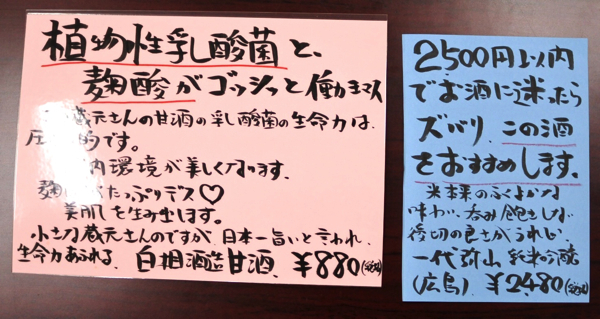 植物性乳酸菌と、
麹酸がゴッシっと働きます
蔵元さんの甘酒の乳酸菌の生命力は、
圧 的です。
内環境が美しくなります。
麹 たっぷりデス♡
美肌を生み出します。
小さな蔵元さんのですが、日本一旨いと言われ、
生命力あふれる、白相酒造甘酒、¥880(税込)
2500円以内
でお酒に迷ったら
ズバリ、この酒
をおすすめします。
米本来のふくよかな
味わい、呑み飽きしない
後切の良さがうれしい
一代弥山 純米吟醸
(広島) ¥2,480(税込)